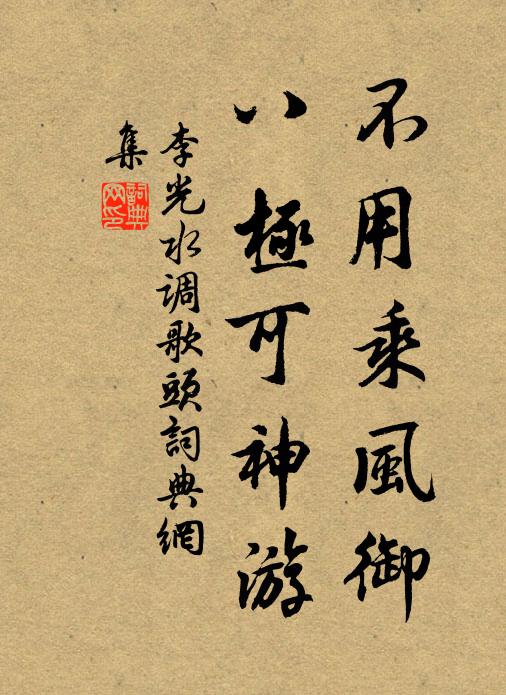 不用乘風御
八極可神游
李光水调歌頭詞典網
集
詞典网印